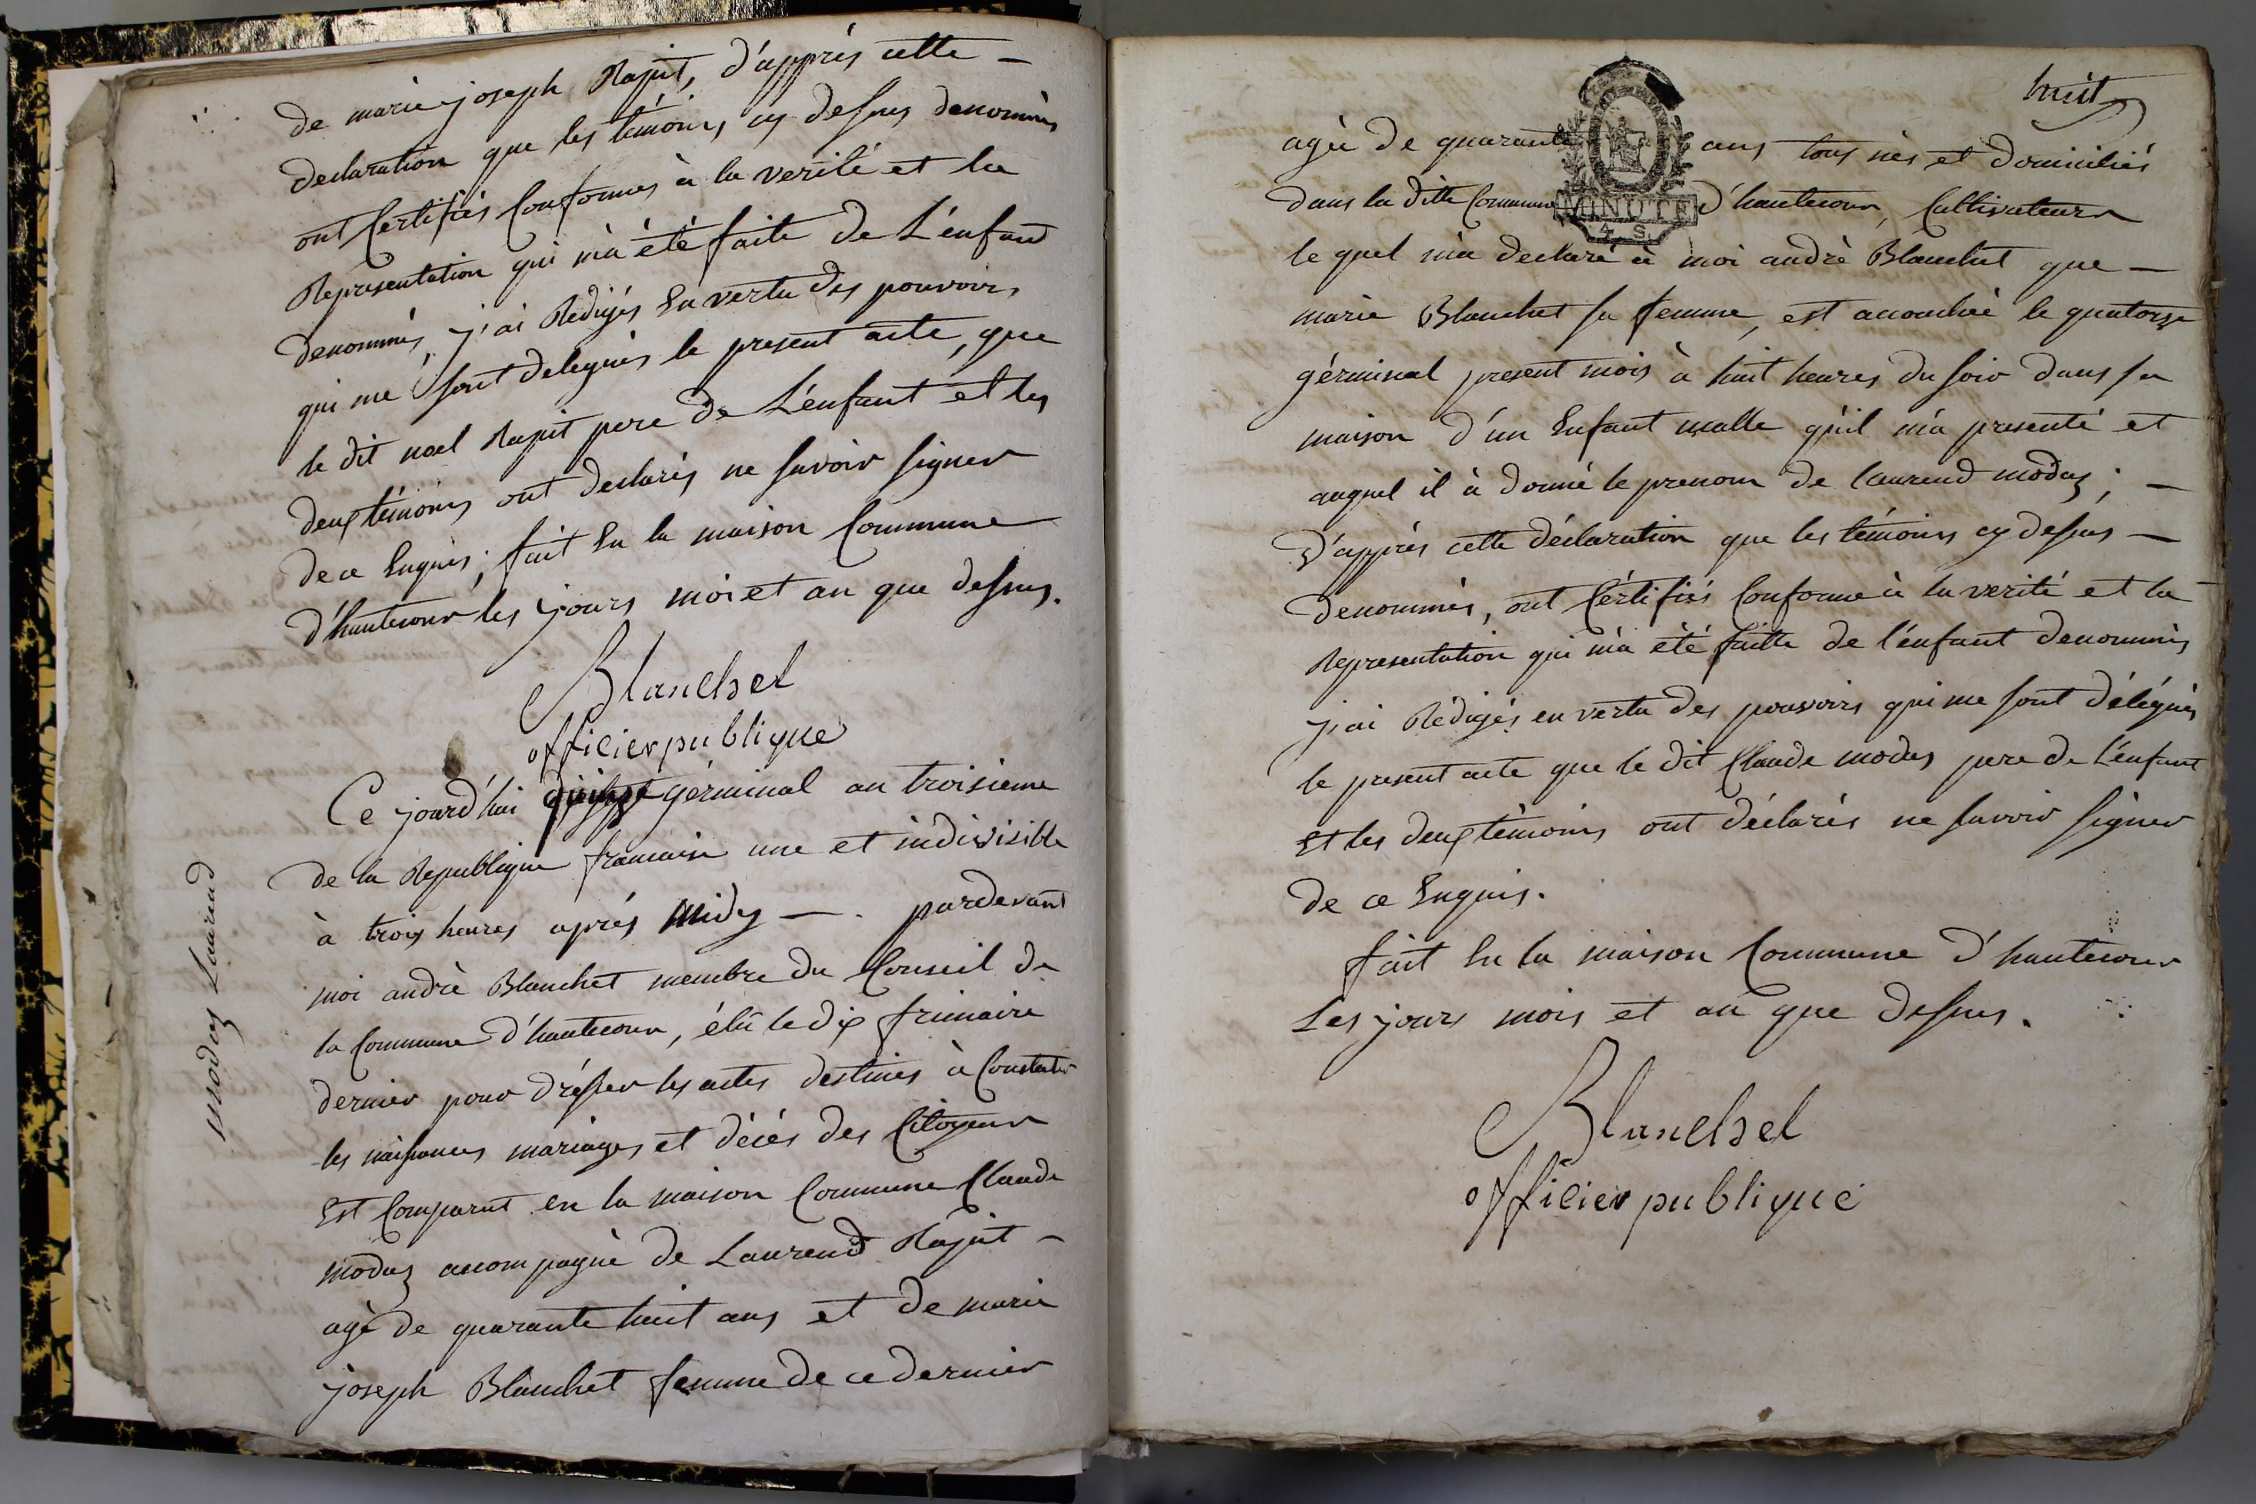 de marie joseph Rapit, d'apprés cette —
declaration que les témoins cy dessus denomés
ont Certifiés Conformes à la verité et la
Representation qui m'a été faite de L'enfant
denommés, j'ai Redigés En vertu des pouvoirs
qui me sont delegués le present acte, que
le dit noel Rapit pere de L'enfant et les
deux témoins ont declarés ne savoir signer
de ce Enquis; fait En la maison Commune
d'hautecour les jours mois et an que dessus.
Blanchet
officier publique
modas Laurend
Ce jourd'hui quinze germinal an troisieme
de la Republique francaise une et indivisible
à trois heures aprés midy — . pardevant
moi andré Blanchet membre du Conseil de
la Commune d'hautecour, élû le dix frimaire
dernier pour drésser les actes destinés à Constater
les naissances mariages et décés des Citoyens
Est Comparut en la maison Commune Claude
modas accompagné de Laurend Rapit –
agé de quarante huit ans et de marie
joseph Blanchet femme de ce dernier
huit
agée de quarante ans tous nés et domiciliés
MINUTE
4 S
dans la ditte Commune d'hautecour, Cultivateurs
le quel m'a declaré à moi andré Blanchet que —
marie Blanchet sa femme, est accouchée le quatorze
gérminal present mois à huit heures du soir dans sa
maison d'un Enfant malle qu'il m'a presenté et
auquel il à donné le prenom de laurend modas; —
D'apprés cette déclaration que les témoins cy dessus —
denommés, ont Cértifiés Conforme à la verité et la
Representation qui m'a été faitte de l'énfant denommés
j'ai Rédigés en vertu des pouvoirs qui me sont délégués
le present acte que le dit Claude modas pere de L'enfant
Et les deux témoins ont déclarés ne savoir signer
de ce Enquis.
fait En la maison Commune d'hautecour
Les jours mois et an que dessus.
Blanchet
officier publique